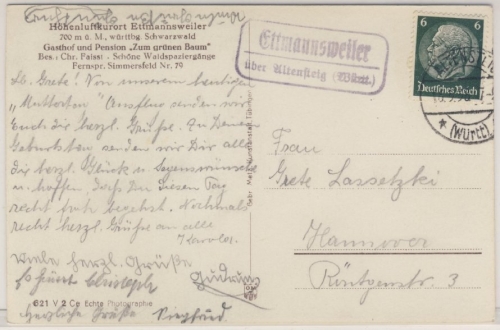 Höhenluftkurort Ettmannsweiler
700 m ü. M., württbg. Schwarzwald
Gasthof und Pension „Zum grünen Baum"
Bes.: Chr. Faisst - Schöne Waldspaziergänge
Fernspr. Simmersfeld Nr. 79
Lb. Grete! Von unserem heutigen
„Muttertag" Ausflug senden wir
Euch die herzl. Grüße. Zu Deinem
Geburtstag senden wir Dir alle
die herzl. Glück u. Segenswünsche
u. hoffen, daß Du diesen Tag
recht froh begehst. Nochmals
recht herzl. Grüße an alle
Viele herzl. Grüße
Gudrun
621 V 2 Ca Echte Photographie
Herzliche Grüße Siegfried
Gebr. Metz, Tübingen
Ettmannsweiler
über Altensteig (Württ.)
6 6
Deutsches Reich
ALTENSTEIG
* (Württ)
Frau
Grete Lassetzki
Hannover
Röntgenstr. 3